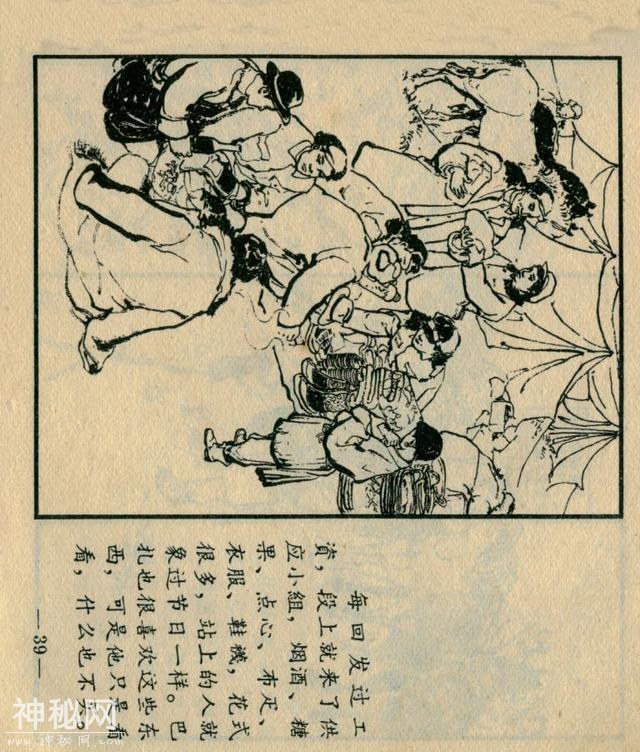 每回发过工
资，段上就来了供
应小組，烟酒、糖
果、点心、布疋、
衣服、鞋襪，花式
很多，站上的人就
象过节日一样。巴
扎也很喜欢这些东
西，可是他只是看
看，什么也不
—39—
神秘网